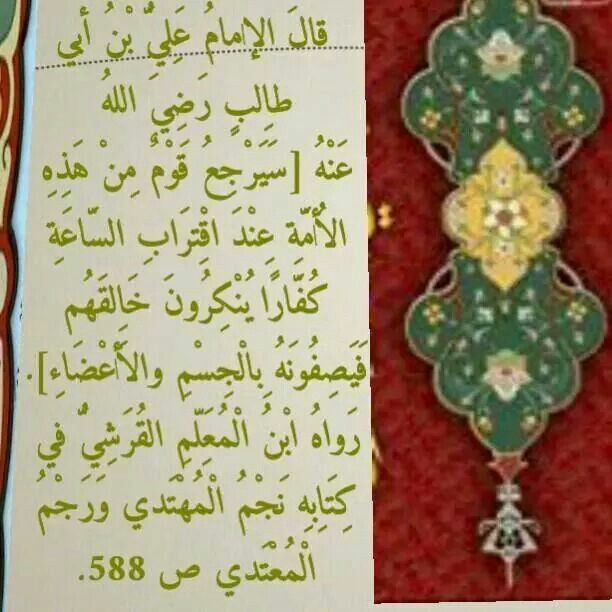 قالَ الإمامُ عَلِيُّ بْنُ أبي
طالِبٍ رَضِيَ اللهُ
عَنْهُ [سَيَرْجِعُ قَوْمٌ مِنْ هَذِهِ
الأُمّةِ عِنْدَ اقْتِرَابِ السّاعَةِ
كُفّارًا يُنْكِرُونَ خَالِقَهُم
فَيَصِفُونَهُ بِالْجِسْمِ والأَعْضَاءِ].
رَواهُ ابْنُ الْمُعَلِّمِ القُرَشِيُّ في
كِتَابِهِ نَجْمُ الْمُهْتَدي وَرَجْمُ
الْمُعْتَدي ص 588.